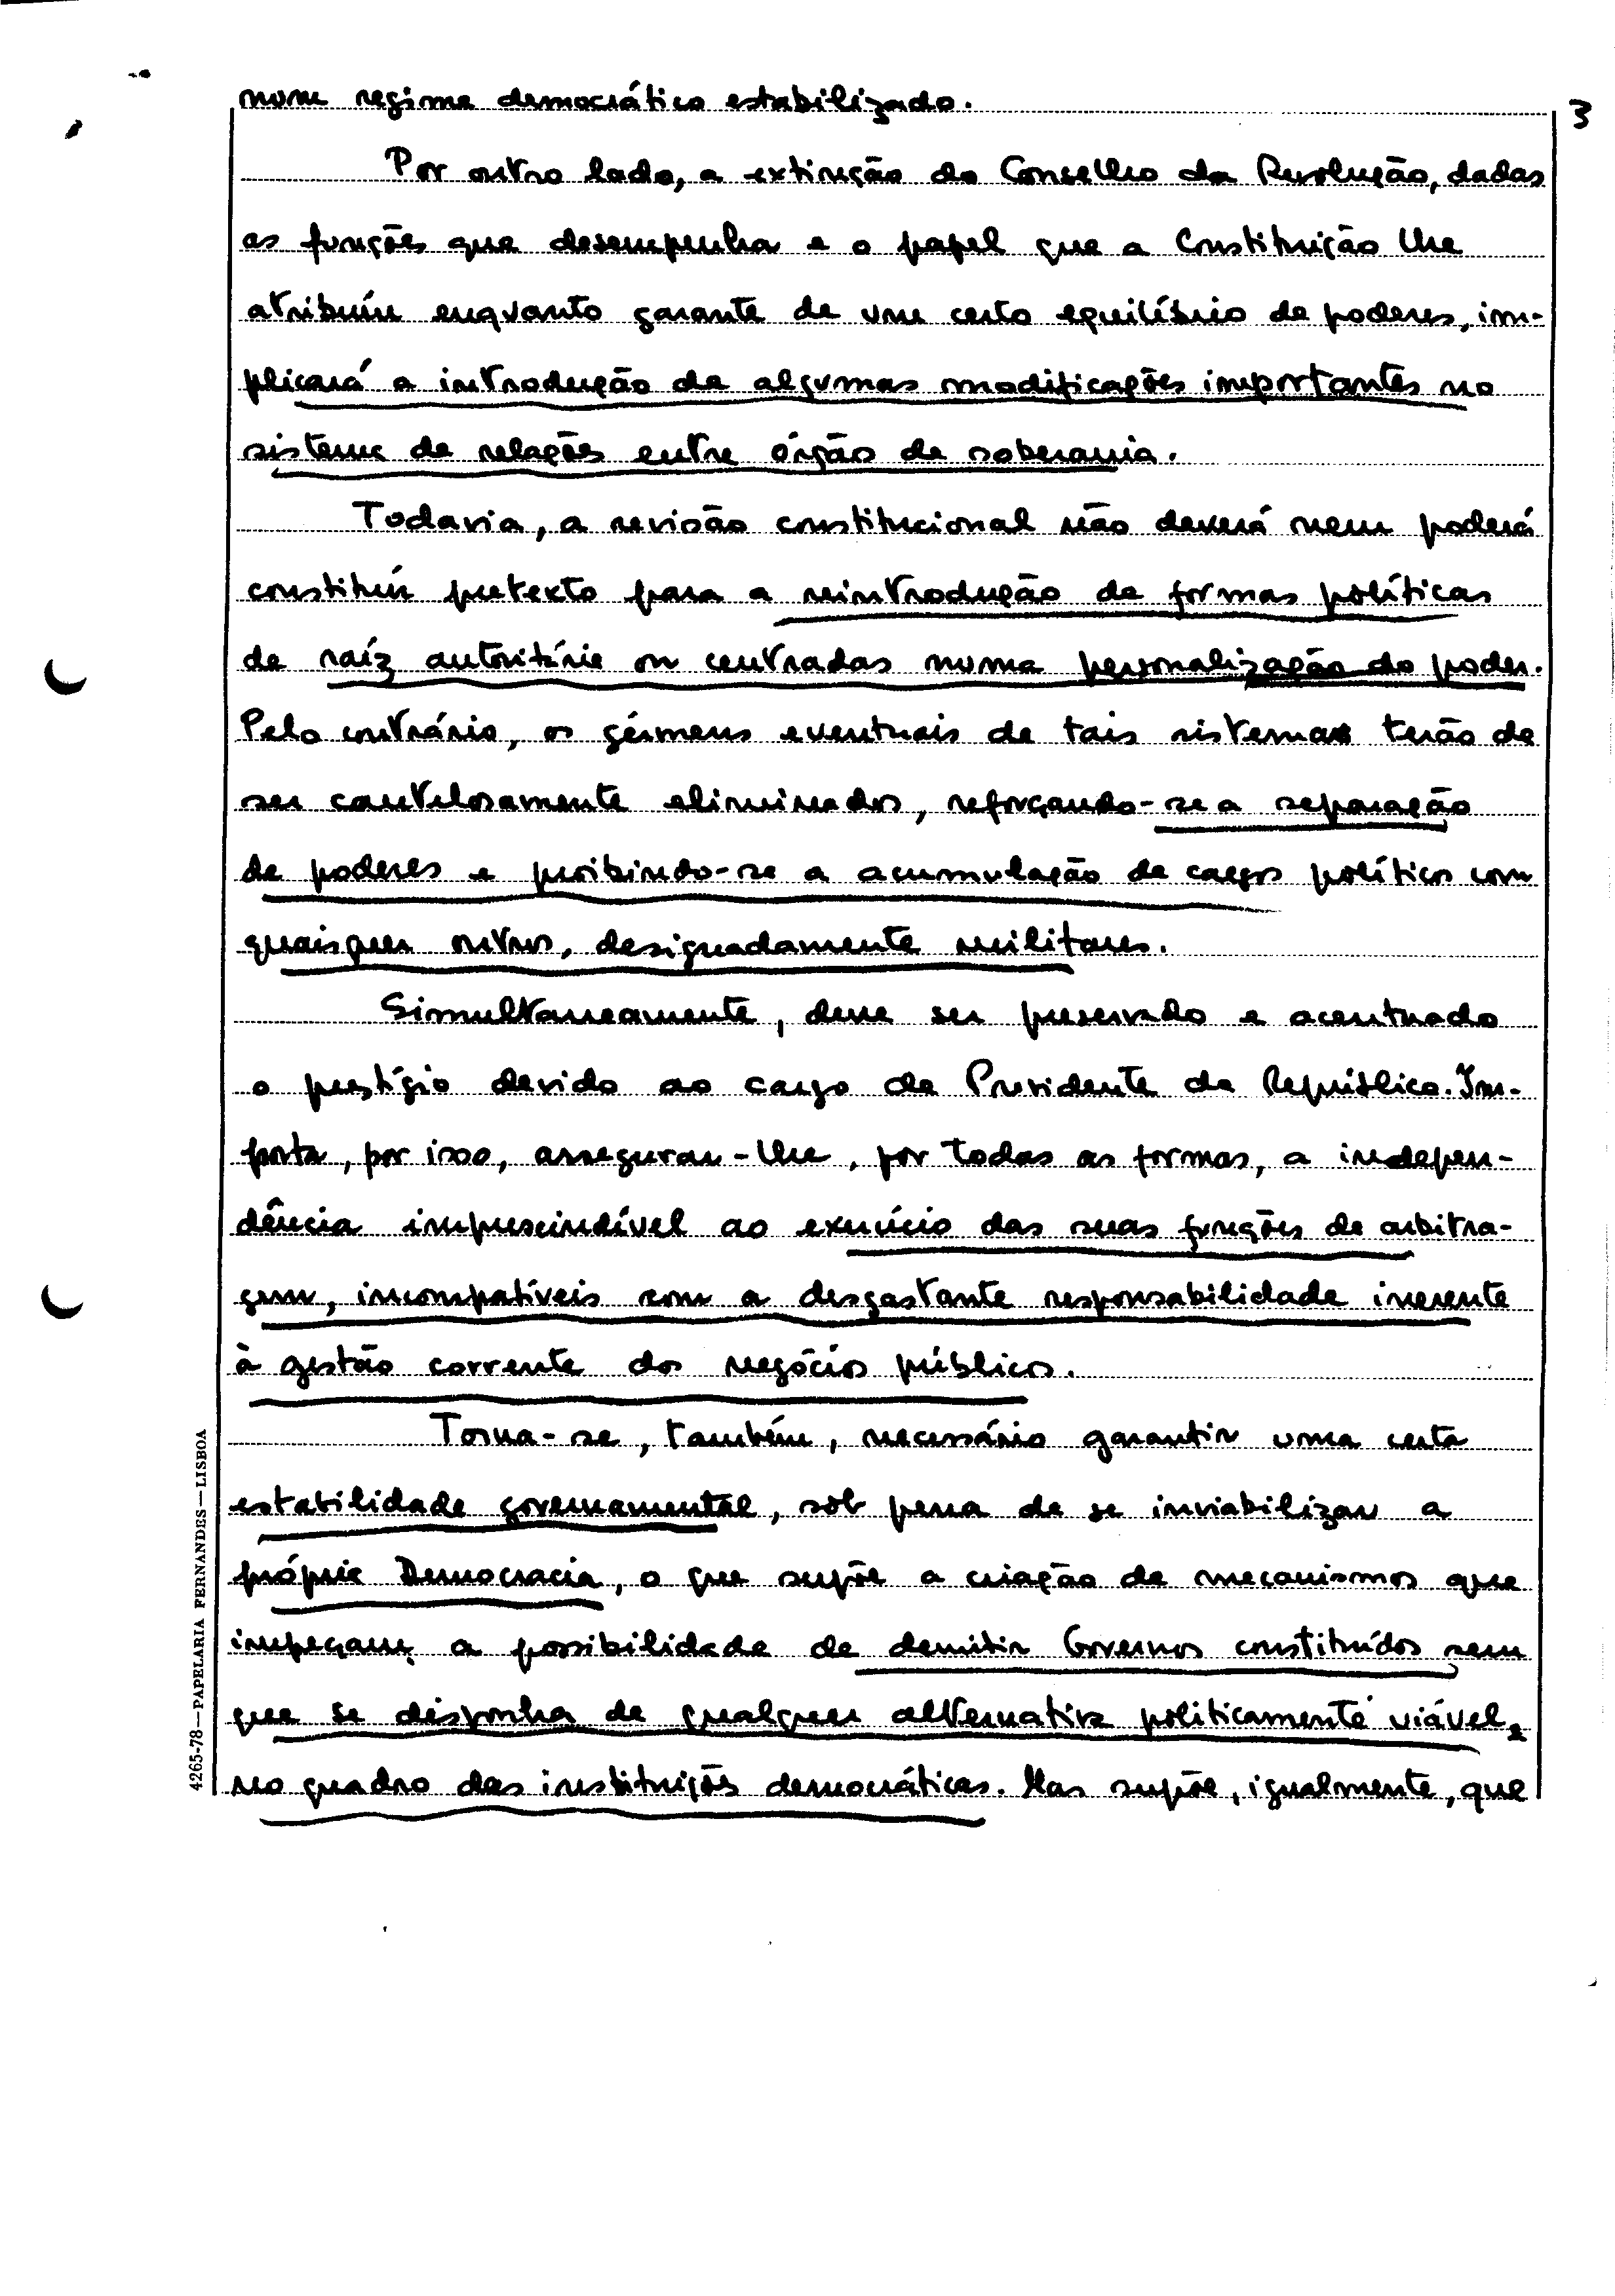 3
num regime democrático estabilizado.
Por outro lado, a extinção do Conselho da Revolução, dadas
as funções que desempenha e o papel que a Constituição lhe
atribuíu enquanto garante de um certo equilíbrio de poderes, im-
plicará a introdução de algumas modificações importantes no
sistema de relações entre órgão de soberania.
Todavia, a revisão constitucional não deverá nem poderá
constituír pretexto para a reintrodução de formas políticas
de raíz autoritária ou centradas numa personalização do poder.
Pelo contrário, os gérmens eventuais de tais sistemas terão de
ser cautelosamente eliminados, reforçando-se a separação
de poderes e proibindo-se a acumulação de cargos políticos com
quaisquer outros, designadamente militares.
Simultaneamente, deve ser preservado e acentuado
o prestígio devido ao cargo de Presidente da República. Im-
porta, por isso, assegurar-lhe, por todas as formas, a indepen-
dência imprescindível ao exercício das suas funções de arbitra-
gem, incompatíveis com a desgastante responsabilidade inerente
à gestão corrente dos negócios públicos.
Torna-se, também, necessário garantir uma certa
estabilidade governamental, sob pena de se inviabilizar a
própria Democracia, o que supõe a criação de mecanismos que
impeçam a possibilidade de demitir Governos constituídos sem
que se disponha de qualquer alternativa politicamente viável,
no quadro das instituições democráticas. Mas supõe, igualmente, que
4265-78—PAPELARIA FERNANDES—LISBOA